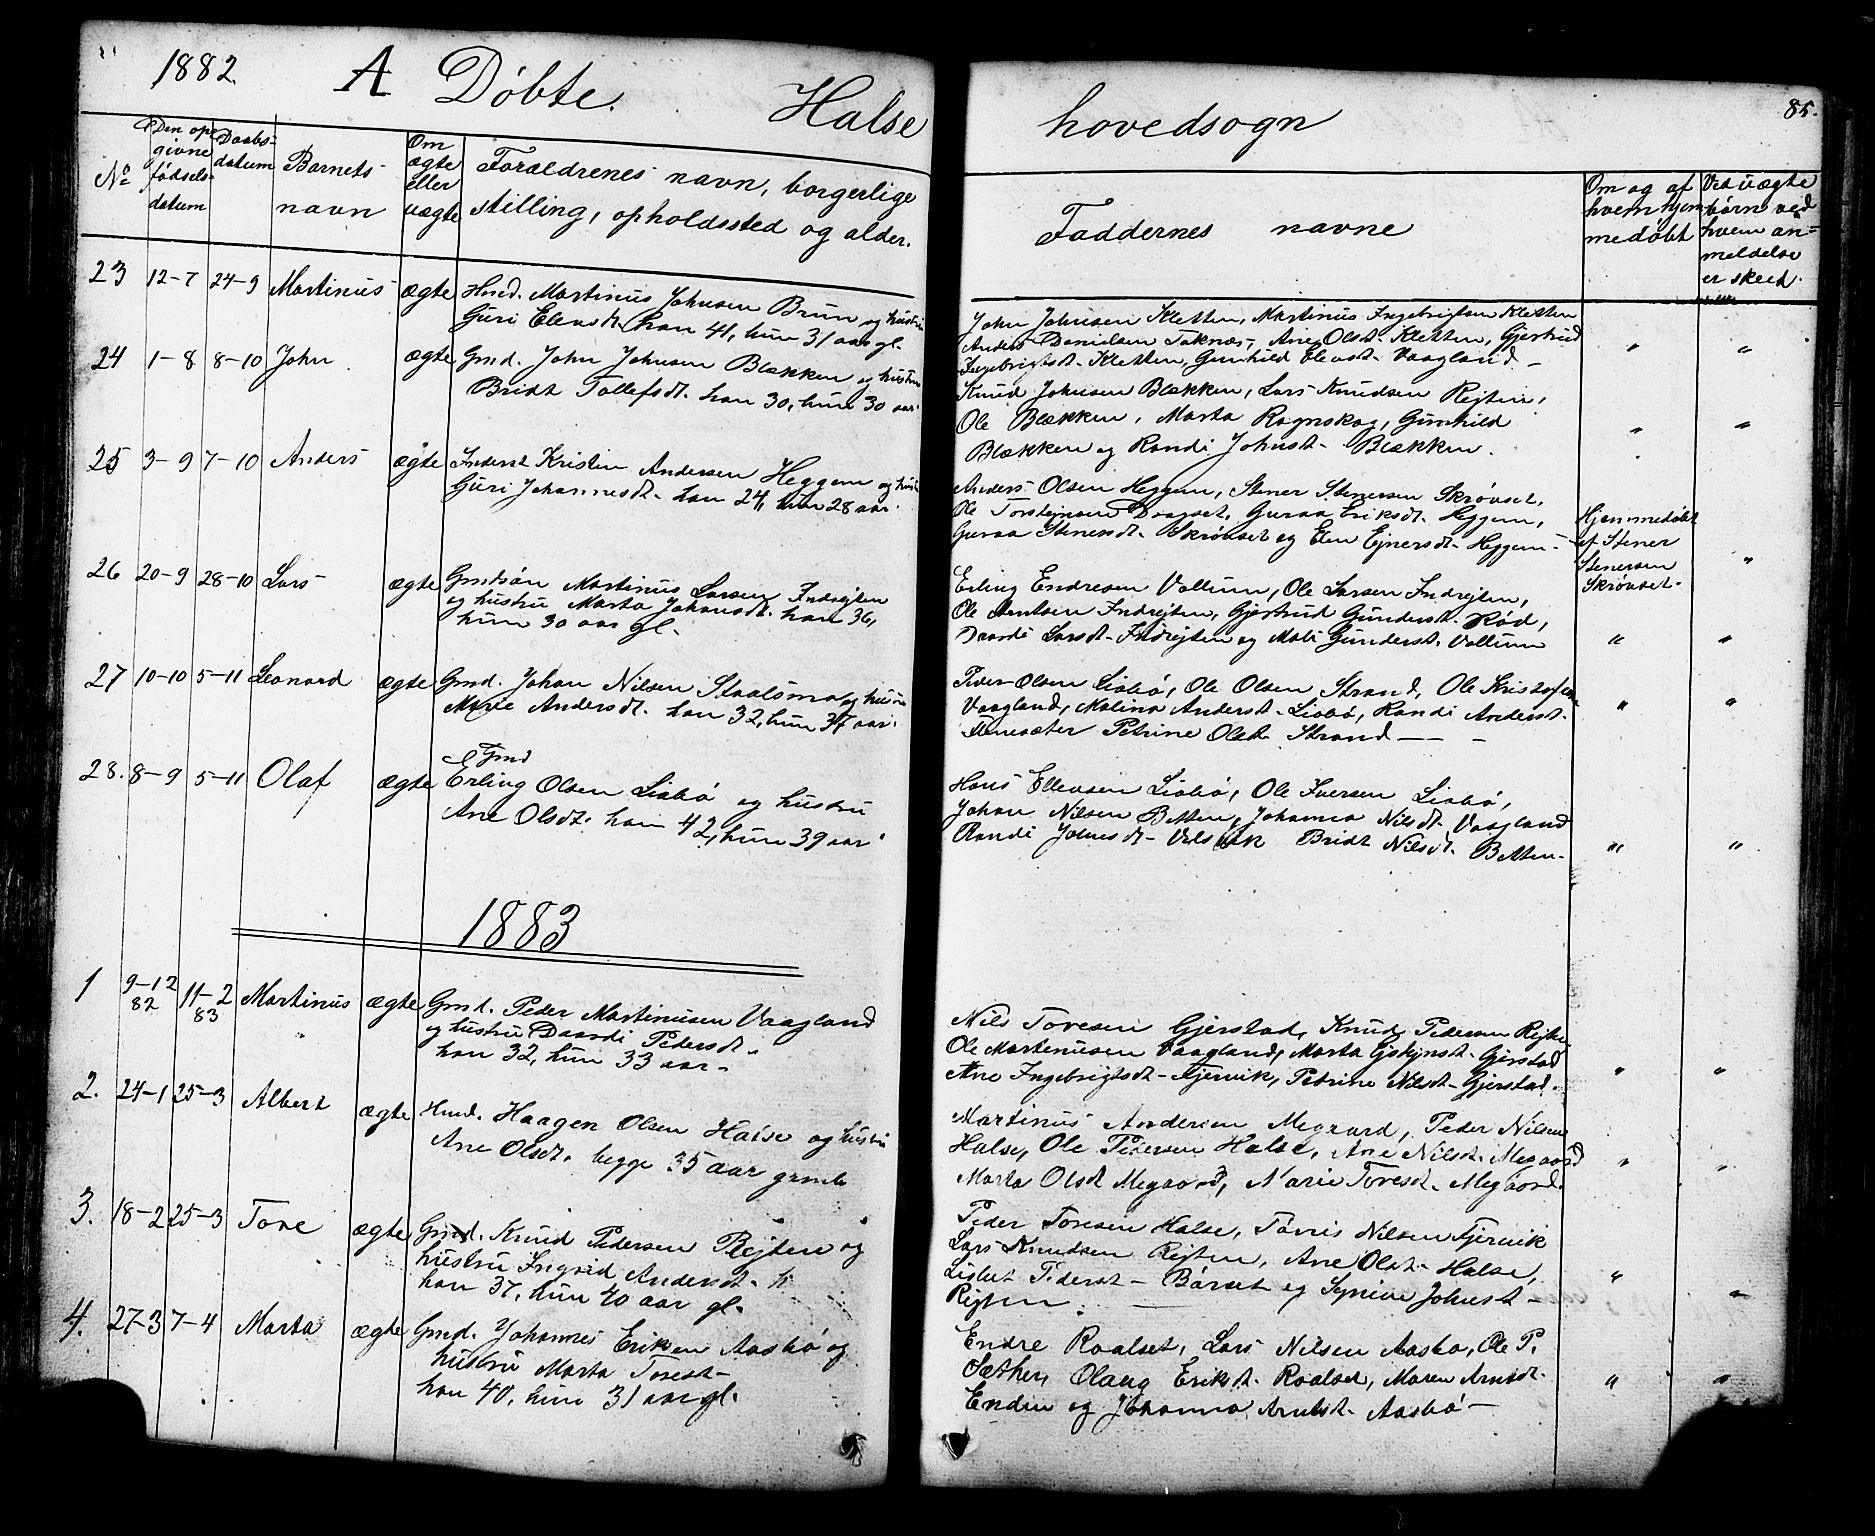 1882 A Døbte. Halse hovedsogn 85.
No
Den op-
givne
fødsels-
datum
Daabs-
datum
Barnets
navn
Om
ægte
eller
uægte
Forældrenes navn, borgerlige
stilling, opholdssted og alder.
Faddernes navne
Om og af
hvem hjem
medøbt
Ved uægte
børn ved
hvem an-
meldelse
er skeed.
23 12-7 24-9 Martinus ægte Hmd. Martinus Johnsen Brun og hustru
Guri Elevsdt. han 41, hun 31 aar gl.
John Johnsen Kletten, Martinus Ingebrigtsen Kletten
Anders Danielsen Taknæs, Ane Olsdt. Kletten, Gjertrud
Ingebrigtsdt. Kletten, Gunhild Elevsdt. Vaagland -
24 1-8 8-10 John ægte Gmd. John Johnsen Blækken og hustru
Bridt Tollefsdt. han 30, hun 30 aar.
Knud Johnsen Blækken, Lars Knudsen Rejten,
Ole Blækken, Marta Ragnskog, Gunhild
Blækken og Randi Johnsdt. Blækken.
25 3-9 7-10 Anders ægte Inderst Kristen Andersen Heggem og hustru
Guri Johannesdt. han 24, hun 28 aar.
Anders Olsen Heggem, Stener Stenersen Skrøvset,
Ole Torstejnsen Draget, Guraa Eriksdt. Heggem,
Guraa Stenersdt. Skrøvset og Elen Ejnersdt. Heggem -
Hjemmedøbt
af Stener
Stenersen
Skrøvset.
26 20-9 28-10 Lars ægte Gmdsøn Martinus Larsen Indrejten
og hustru Marta Johansdt. han 36,
hun 30 aar gl.
Erling Endresen Vollum, Ole Larsen Indrejten,
Ole Arntsen Indrejten, Gjertrud Gundersdt. Rød,
Dordi Larsdt. Indrejten og Mali Gundersdt. Vollum
27 10-10 5-11 Leonard ægte Gmd. Johan Nilsen Staalsmo og hustru
Marie Andersdt. han 32, hun 37 aar.
Peder Olsen Lisbø, Ole Olsen Strand, Ole Kristofersen
Vaagland, Malina Andersdt. Lisbø, Randi Andersdt.
Stenesæter Petrine Olsdt. Strand
28. 8-9 5-11 Olaf ægte Gmd
Erling Olsen Lisbø og hustru
Ane Olsdt. han 42, hun 39 aar
Hans Ellevsen Lisbø, Ole Iversen Lisbø,
Johan Nilsen Betten, Johanna Nilsdt. Vaagland
Randi Johnsdt. Bridt Nilsdt. Betten.
1883
1 9-12 82 11-2 83 Martinus ægte Gmd. Peder Martinusen Vaagland
og hustru Daardi Pedersdt.
han 32, hun 33 aar.
Nils Toresen Gjerstad, Knud Pedersen Rejten
Ole Martinusen Vaagland, Marta Gjerstad
Ane Ingebrigtsdt. Fjervik, Petrine Nilsdt. Gjerstad.
2. 24-1 25-3 Albert ægte Hmd. Haagen Olsen Halse og hustru
Ane Olsdt. begge 35 aar gamle
Martinus Andersen Megaard, Peder Nilsen
Halse, Ole Pedersen Halse, Ane Nilsdt. Megaard
Marta Olsdt Megaard, Marie Toresdt. Megaard.
3. 18-2 25-3 Tore ægte Gmd. Knud Pedersen Rejten og
hustru Ingrid Andersdt.
han 37, hun 40 aar gl.
Peder Toresen Halse, Tørris Nilsen Fjervik
Lars Knudsen Rejten, Ane Olsdt. Halse,
Lisbet Pedersdt. Børset og Synive Johnsdt.
Rejten.
4. 27-3 7-4 Marta ægte Gmd. Johannes Eriksen Aasbø og
hustru Marta Toresdt.
han 40, hun 31 aar gl.
Endre Roalset, Lars Nilsen Aasbø, Ole P.
Sæther, Olaug Eriksdt. Roalset, Maren Arntsdt.
Endin og Johanna Arntsdt. Aasbø